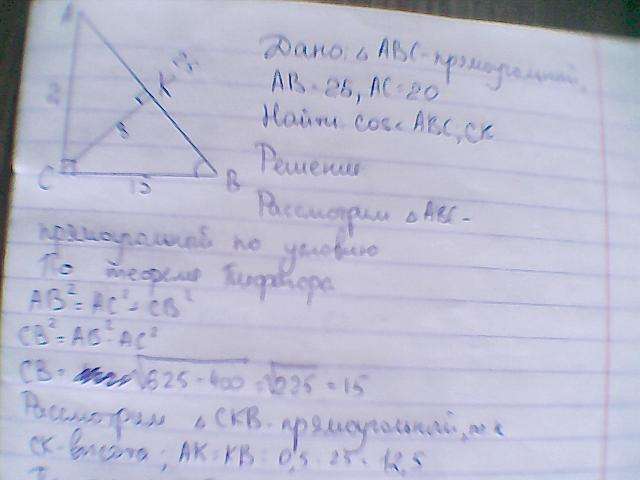 A
K
C
B
Дано: △ ABC - прямоугольный,
AB = 25, AC = 20
Найти cos < ABC, CK
Решение
Рассмотрим △ ABC -
прямоугольный по условию
По теореме Пифагора
AB² = AC² + CB²
CB² = AB² - AC²
CB = √625 - 400 = √225 = 15
Рассмотрим △ CKB - прямоугольный, т.к
CK - высота; AK = KB = 0,5 · 25 = 12,5